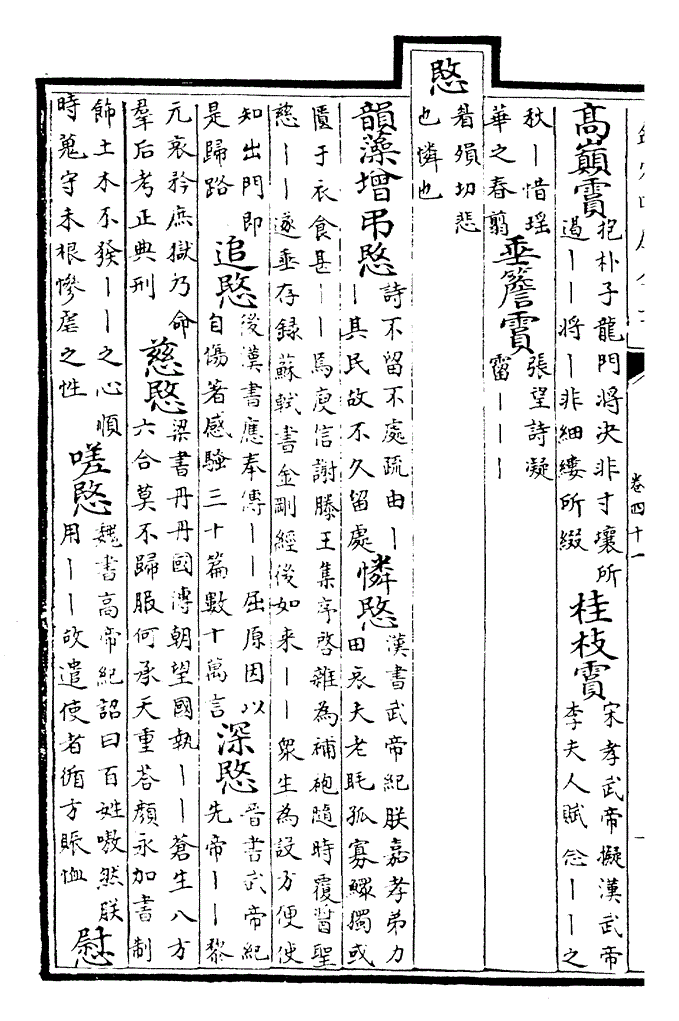 卷四十一
高巔霣 抱朴子龍門將决非寸壤所
過丨丨將丨非細縷所綴
桂枝霣 宋孝武帝擬漢武帝
李夫人賦念丨丨之
秋丨惜瑶
華之春翦
垂簷霣 張望詩凝
霤丨丨丨
愍
眉殞切悲
也憐也
韻藻增弔愍 詩不留不處疏由丨
丨其民故不久留處
憐愍 漢書武帝紀朕嘉孝弟力
田哀夫老眊孤寡鰥獨或
匱于衣食甚丨丨焉庾信謝滕王集序啓雖為補袍隨時覆醬聖
慈丨丨遂垂存録蘇軾書金剛經後如来丨丨衆生為設方便使
知出門即
是歸路
追愍 後漢書應奉傳丨丨屈原因以
自傷著感騷三十篇數十萬言
深愍 晉書武帝紀
先帝丨丨黎
元哀矜庶獄乃命
羣后考正典刑
慈愍 梁書丹丹國傳朝望國執丨丨蒼生八方
六合莫不歸服何承天重荅顔永加書制
飾土木不發丨丨之心順
時蒐守未根慘虐之性
嗟愍 魏書高帝紀詔曰百姓嗷然朕
用丨丨故遣使者循方賑恤
慰